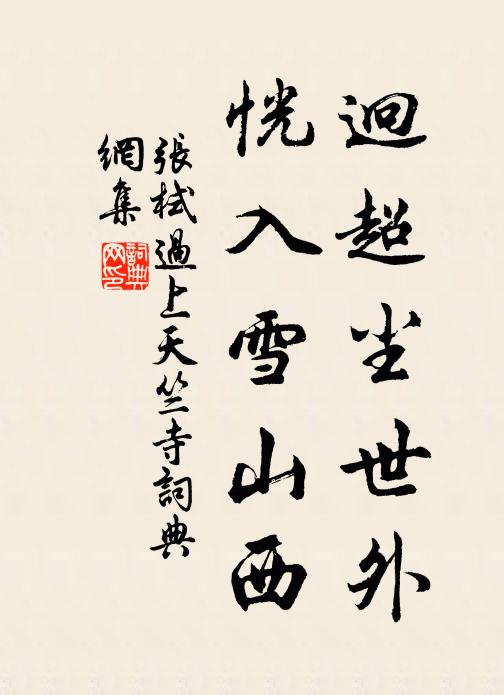 迥超尘世外
恍入雪山西
張栻過上天竺寺詞典
網集
詞典
网印